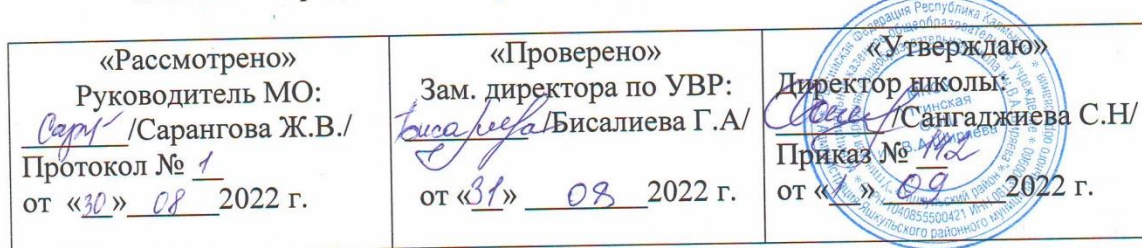 «Рассмотрено»
Руководитель МО:
/Сарангова Ж.В./
Протокол № 1
от «30» 08 2022 г.
«Проверено»
Зам. директора по УВР:
/Бисалиева Г.А/
от «31» 08 2022 г.
«Утверждаю»
Директор школы:
/Сангаджиева С.Н/
Приказ № 112
от «1» 09 2022 г.